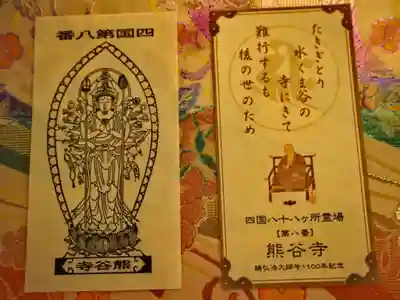 四国第八番
熊谷寺
たきぎとり
水くま谷の
寺にきて
難行するも
後の世のため
四国八十八ヶ所霊場
【第八番】
熊谷寺
贈弘法大師号1100年記念